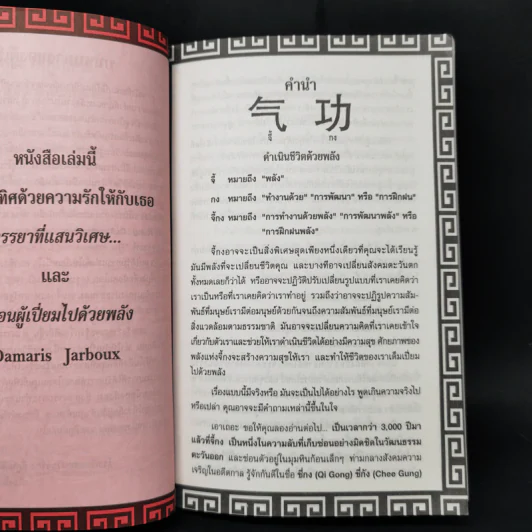 หนังสือเล่มนี้
ทิศด้วยความรักให้กับเธอ
รรยาที่แสนวิเศษ...
และ
อนผู้เปี่ยมไปด้วยพลัง
Damaris Jarboux
คำนำ
气 功
จี้ กง
ดำเนินชีวิตด้วยพลัง
จี้ หมายถึง "พลัง"
กง หมายถึง "ทำงานด้วย" "การพัฒนา" หรือ "การฝึกฝน"
จี้กง หมายถึง "การทำงานด้วยพลัง" "การพัฒนาพลัง" หรือ
"การฝึกฝนพลัง"
จี้กงอาจจะเป็นสิ่งพิเศษสุดเพียงหนึ่งเดียวที่คุณจะได้เรียนรู้
มันมีพลังที่จะเปลี่ยนชีวิตคุณ และบางทีอาจเปลี่ยนสังคมตะวันตก
ทั้งหมดเลยก็ว่าได้ หรืออาจจะปฏิวัติปรับเปลี่ยนรูปแบบที่เราเคยคิดว่า
เราเป็นหรือที่เราเคยคิดว่าเราทำอยู่ รวมถึงว่าอาจจะปฏิรูปความสัม-
พันธ์ที่มนุษย์เรามีต่อมนุษย์ด้วยกันจนถึงความสัมพันธ์ที่มนุษย์เรามีต่อ
สิ่งแวดล้อมตามธรรมชาติ มันอาจจะเปลี่ยนความคิดที่เราเคยเข้าใจ
เกี่ยวกับตัวเราและช่วยให้เราดำเนินชีวิตได้อย่างมีความสุข ศักยภาพของ
พลังแห่งจี้กงจะสร้างความสุขให้เรา และทำให้ชีวิตของเราเต็มเปี่ยม
ไปด้วยพลัง
เรื่องแบบนี้มีจริงหรือ มันจะเป็นไปได้อย่างไร พูดเกินความจริงไป
หรือเปล่า คุณอาจจะมีคำถามเหล่านี้ขึ้นในใจ
เอาเถอะ ขอให้คุณลองอ่านต่อไป... เป็นเวลากว่า 3,000 ปีมา
แล้วที่จี้กง เป็นหนึ่งในความลับที่เก็บซ่อนอย่างมิดชิดในวัฒนธรรม
ตะวันออก และซ่อนตัวอยู่ในมุมหินก้อนเล็กๆ ท่ามกลางสังคมความ
เจริญในอดีตกาล รู้จักกันดีในชื่อ ชี่กง (Qi Gong) ชี่กัง (Chee Gung)